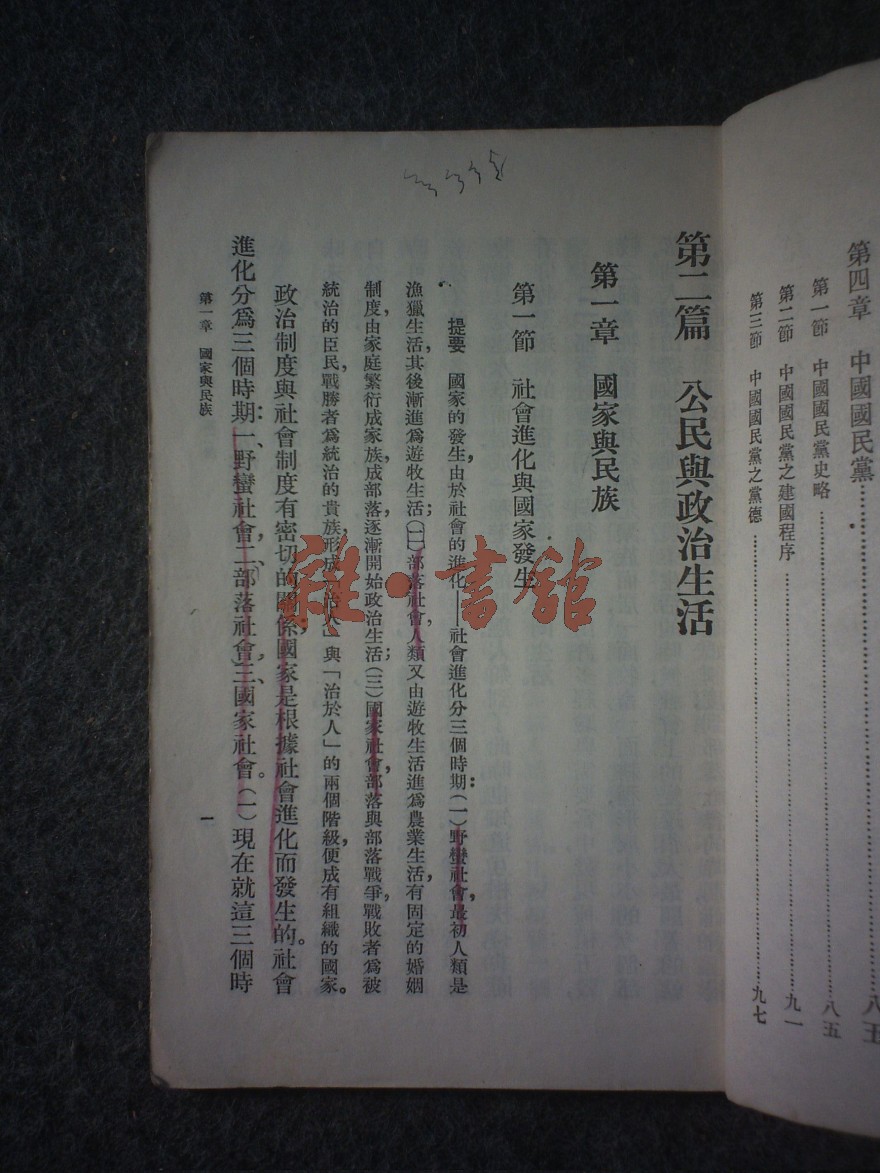 第四章　中國國民黨……八五
第一節　中國國民黨史略……八五
第二節　中國國民黨之建國程序……九一
第三節　中國國民黨之黨德……九七
第二篇　公民與政治生活
第一章　國家與民族
第一節　社會進化與國家發生
提要　國家的發生，由於社會的進化——社會進化分三個時期：（一）野蠻社會，最初人類是
漁獵生活，其後漸進爲遊牧生活；（二）部落社會，人類又由遊牧生活進爲農業生活，有固定的婚姻
制度，由家庭繁衍成家族成部落，逐漸開始政治生活；（三）國家社會，部落與部落戰爭，戰敗者爲被
統治的臣民，戰勝者爲統治的貴族，形成「治人」與「治於人」的兩個階級，便成有組織的國家。
政治制度與社會制度有密切的關係；國家是根據社會進化而發生的。社會
進化分爲三個時期：一、野蠻社會，二、部落社會，三、國家社會。（一）現在就這三個時
第一章　國家與民族
一
雜·書館